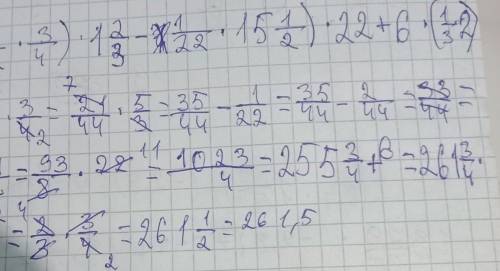 · 3/4) · 1 2/3 - 1/22 · 15 1/2) · 22 + 6 · (1/3
7
· 3/42 = 21/44 · 5/3 = 35/44 - 1/22 = 35/44 - 2/44 = 33/44 =
= 93/8 · 22 11 = 1023/4 = 255 3/4 + 6 = 261 3/4 ·
= 2/3 · 3/4 2 = 261 1/2 = 261,5